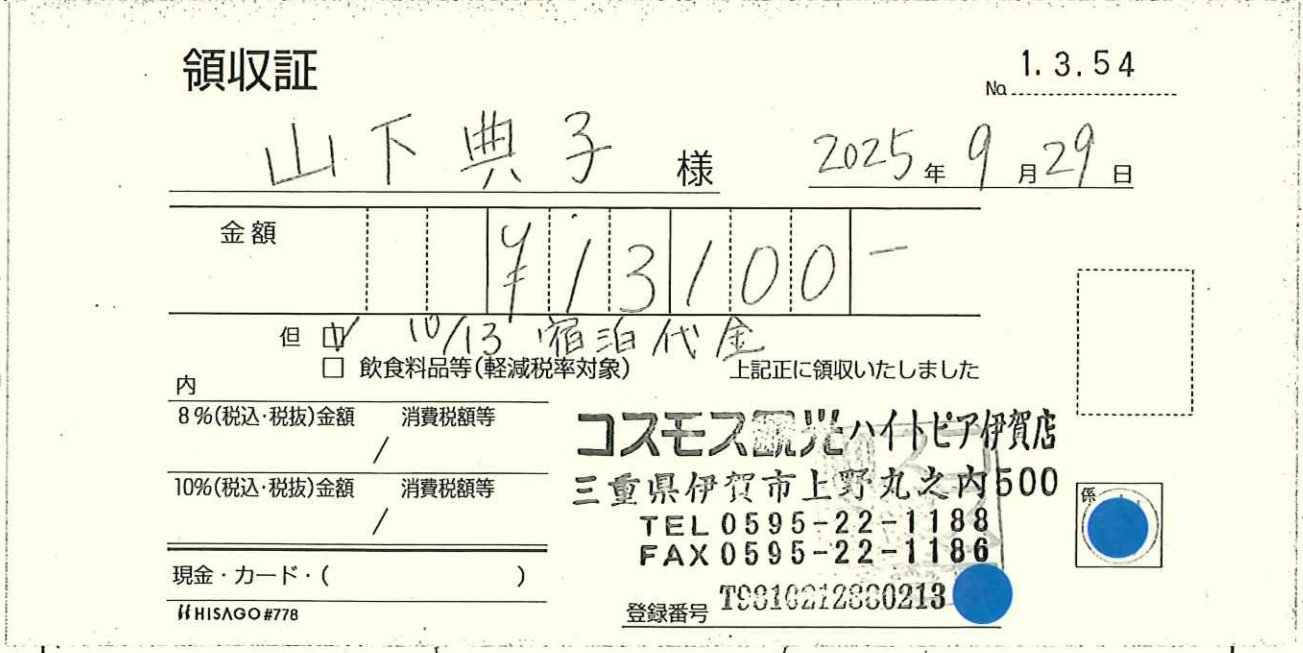 領収証
No. 1.3.54
山下典子 様
2025年9月29日
金額 ¥13100-
但 10/13 宿泊代金
飲食料品等(軽減税率対象)
上記正に領収いたしました
内
8%(税込・税抜)金額 消費税額等
/
10%(税込・税抜)金額 消費税額等
/
現金・カード・( )
HISAGO #778
コスモス観光ハイトピア伊賀店
三重県伊賀市上野丸之内500
TEL 0595-22-1188
FAX 0595-22-1186
登録番号
係